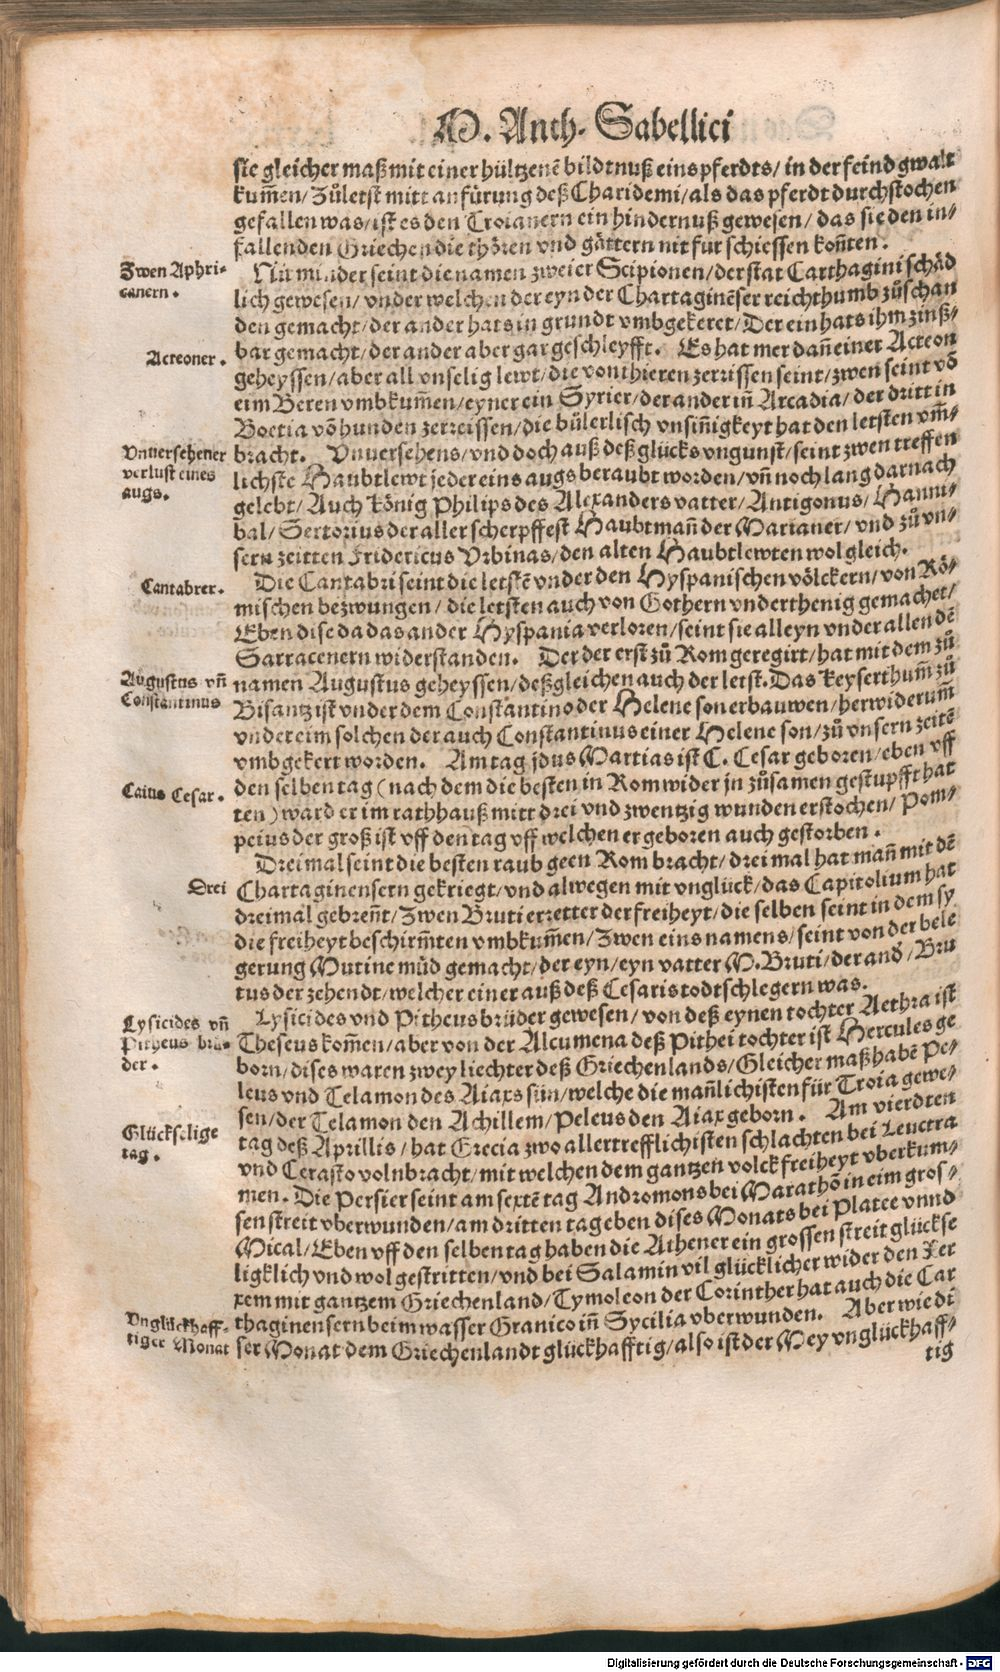 M. Anth. Sabellici
sie gleicher maß mit einer hültzenē bildtnuß eins pferdts/ in der feind gwalt
kum̄en/ Zůletst mitt anfürung deß Charidemi/ als das pferdt durchstochen
gefallen was/ ist es den Troianern ein hindernuß gewesen/ das sie den in⸗
fallenden Griechen die thören vnd gättern nit fur schiessen koñten.
Zwen Aphri⸗
canern.
Nit minder seint die namen zweier Scipionen/ der stat Carthagini schäd
lich gewesen/ vnder welchen der eyn der Chartaginēser reichthumb zůschan
den gemacht/ der ander hats in grundt vmbgekeret/ Der ein hats ihm zinß⸗
Acteoner.
bar gemacht/ der ander aber gar geschleyfft. Es hat mer dañ einer Acteon
geheyssen/ aber all vnselig lewt/ die von thieren zerrissen seint/ zwen seint võ
eim Beren vmbkum̄en/ eyner ein Syrier/ der ander iñ Arcadia/ der dritt in
Boetia võ hunden zerreissen/ die bülerlisch vnsiñigkeyt hat den letsten vm̄⸗
Vnuersehener
verlust eines
augs.
bracht. Vnuersehens/ vnd doch auß deß glücks vngunst/ seint zwen treffen
lichste Haubtlewt jeder eins augs beraubt worden/ vñ noch lang darnach
gelebt/ Auch König Philips des Alexanders vatter/ Antigonus/ Hanni⸗
bal/ Sertorius der aller scherpffest Haubtmañ der Marianer/ vnd zů vn⸗
sern zeitten Fridericus Vrbinas/ den alten Haubtlewten wol gleich.
Cantabrer.
Die Cantabri seint die letstē vnder den Hyspanischen völckern/ von Rö⸗
mischen bezwungen/ die letsten auch von Gothern vnderthenig gemachet/
Eben dise da das ander Hyspania verloren/ seint sie alleyn vnder allen dē
Sarracenern widerstanden. Der der erst zů Rom geregirt/ hat mit dem zů
Augustus vñ
Constantinus
namen Augustus geheyssen/ deßgleichen auch der letst. Das keyserthum̄ zů
Bisantz ist vnder dem Constantino der Helene son erbauwen/ herwiderum
vnder eim solchen der auch Constantinus einer Helene son/ zů vnsern zeitē
vmbgekert worden. Am tag jdus Martias ist C. Cesar geboren/ eben vff
Caius Cesar.
den selben tag (nach dem die besten in Rom wider jn zůsamen gestupfft hat
ten) ward er im rathhauß mitt drei vnd zwentzig wunden erstochen/ Pom⸗
peius der groß ist vff den tag vff welchen er geboren auch gestorben.
Drei mal seint die besten raub geen Rom bracht/ drei mal hat mañ mit dē
Drei
Chartaginensern gekriegt/ vnd alwegen mit vnglück/ das Capitolium hat
dreimal gebreñt/ Zwen Bruti erretter der freiheyt/ die selben seint in dem sy
die freiheyt beschirm̄ten vmbkum̄en/ Zwen eins namens/ seint von der bele
gerung Mutine müd gemacht/ der eyn/ eyn vatter M. Bruti/ der and/ Bru
tus der zehendt/ welcher einer auß deß Cesaris todtschlegern was.
Lysicides vñ
Pitheus brü⸗
der.
Lysicides vnd Pitheus brüder gewesen/ von deß eynen tochter Aethra ist
Theseus kom̄en/ aber von der Alcumena deß Pithei tochter ist Hercules ge
born/ dises waren zwey liechter deß Griechenlands/ Gleicher maß habē Pe⸗
leus vnd Telamon des Aiaxs sün/ welche die mañlichisten für Troia gewe⸗
sen/ der Telamon den Achillem/ Peleus den Aiax geborn. Am vierdten
Glückselige
tag.
tag deß Aprillis/ hat Grecia zwo allertrefflichisten schlachten bei Leuctra
vnd Cerasto volnbracht/ mit welchen dem gantzen volck freiheyt vberkum⸗
men. Die Persier seint am sextē tag Andromons bei Marathō in eim gros⸗
sen streit vberwunden/ am dritten tag eben dises Monats bei Platee vnnd
Mical/ Eben vff den selben tag haben die Athener ein grossen streit glückse
ligklich vnd wol gestritten/ vnd bei Salamin vil glücklicher wider den Xer
xem mit gantzem Griechenland/ Tymoleon der Corinther hat auch die Car
Vnglückhaff⸗
tiger Monat
thaginensern beim wasser Granico iñ Sycilia vberwunden. Aber wie di
ser Monat dem Griechenlandt glückhafftig/ also ist der Mey vnglückhaff⸗
tig
Digitalisierung gefördert durch die Deutsche Forschungsgemeinschaft - DFG